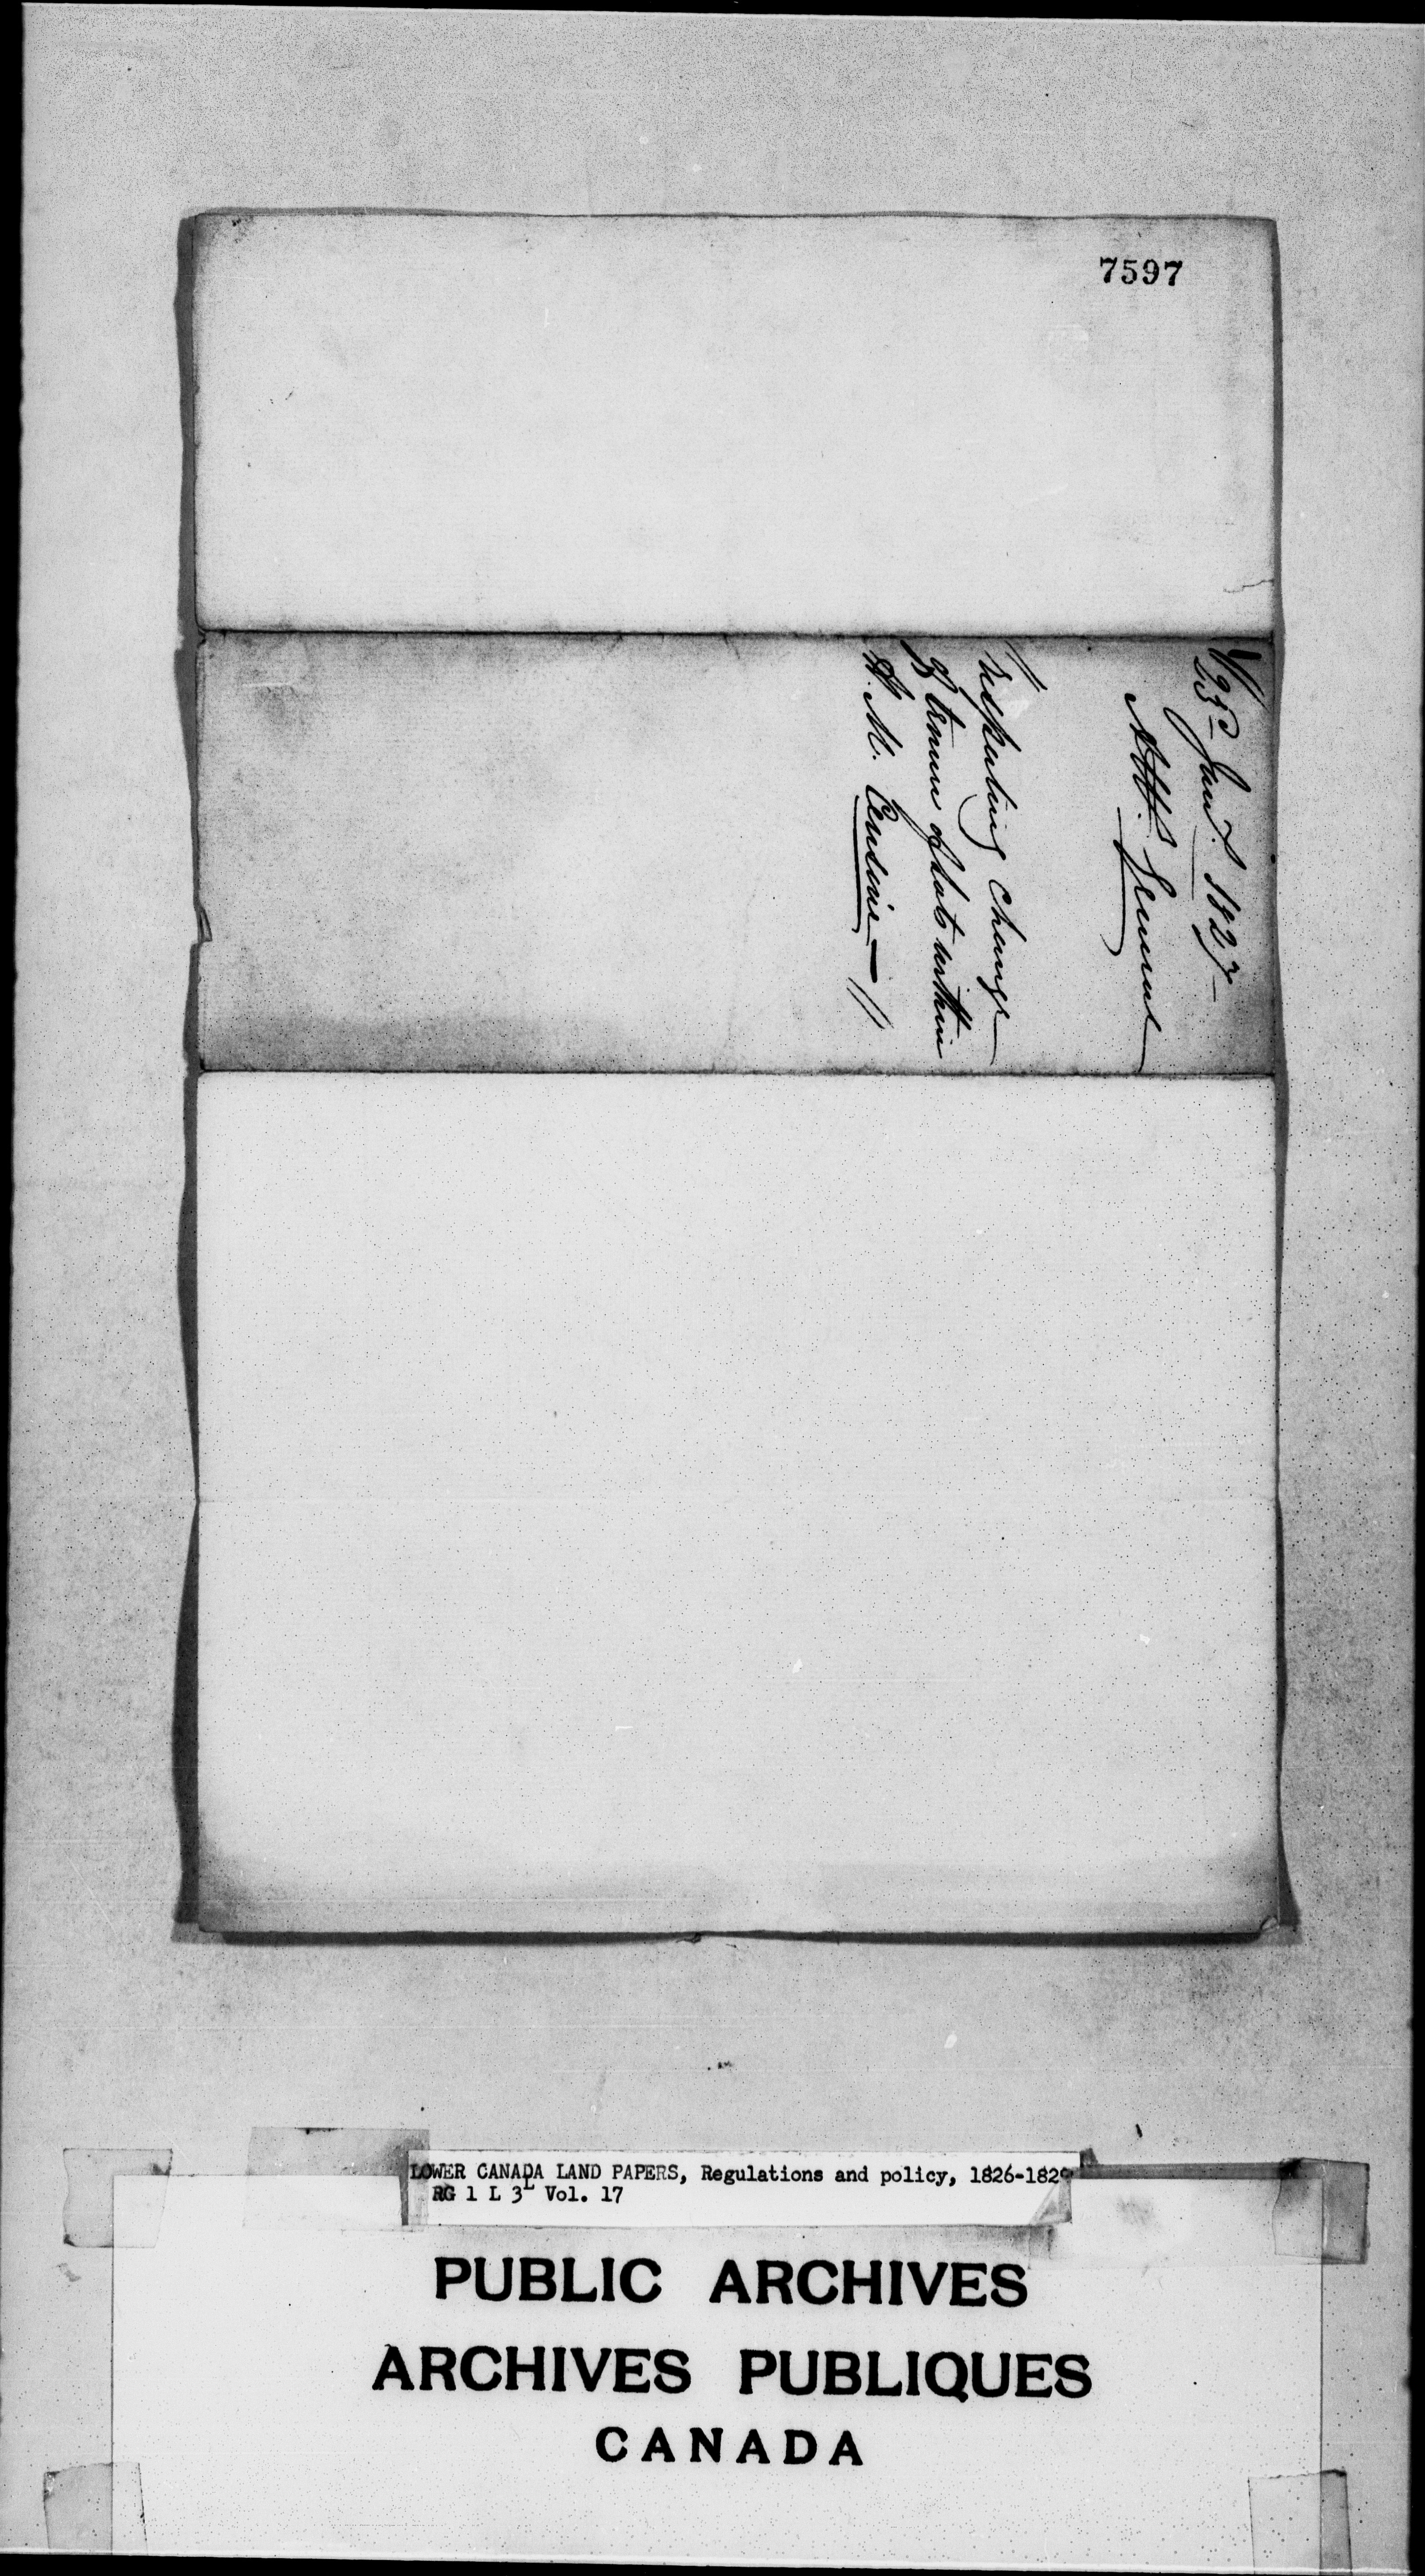 7597
23d Jany. 1827 —
Atty. General
respecting Change
of tenure of Lots within
H. M. Censive — //
LOWER CANADA LAND PAPERS, Regulations and policy, 1826-1829
RG 1 L 3L Vol. 17
PUBLIC ARCHIVES
ARCHIVES PUBLIQUES
CANADA